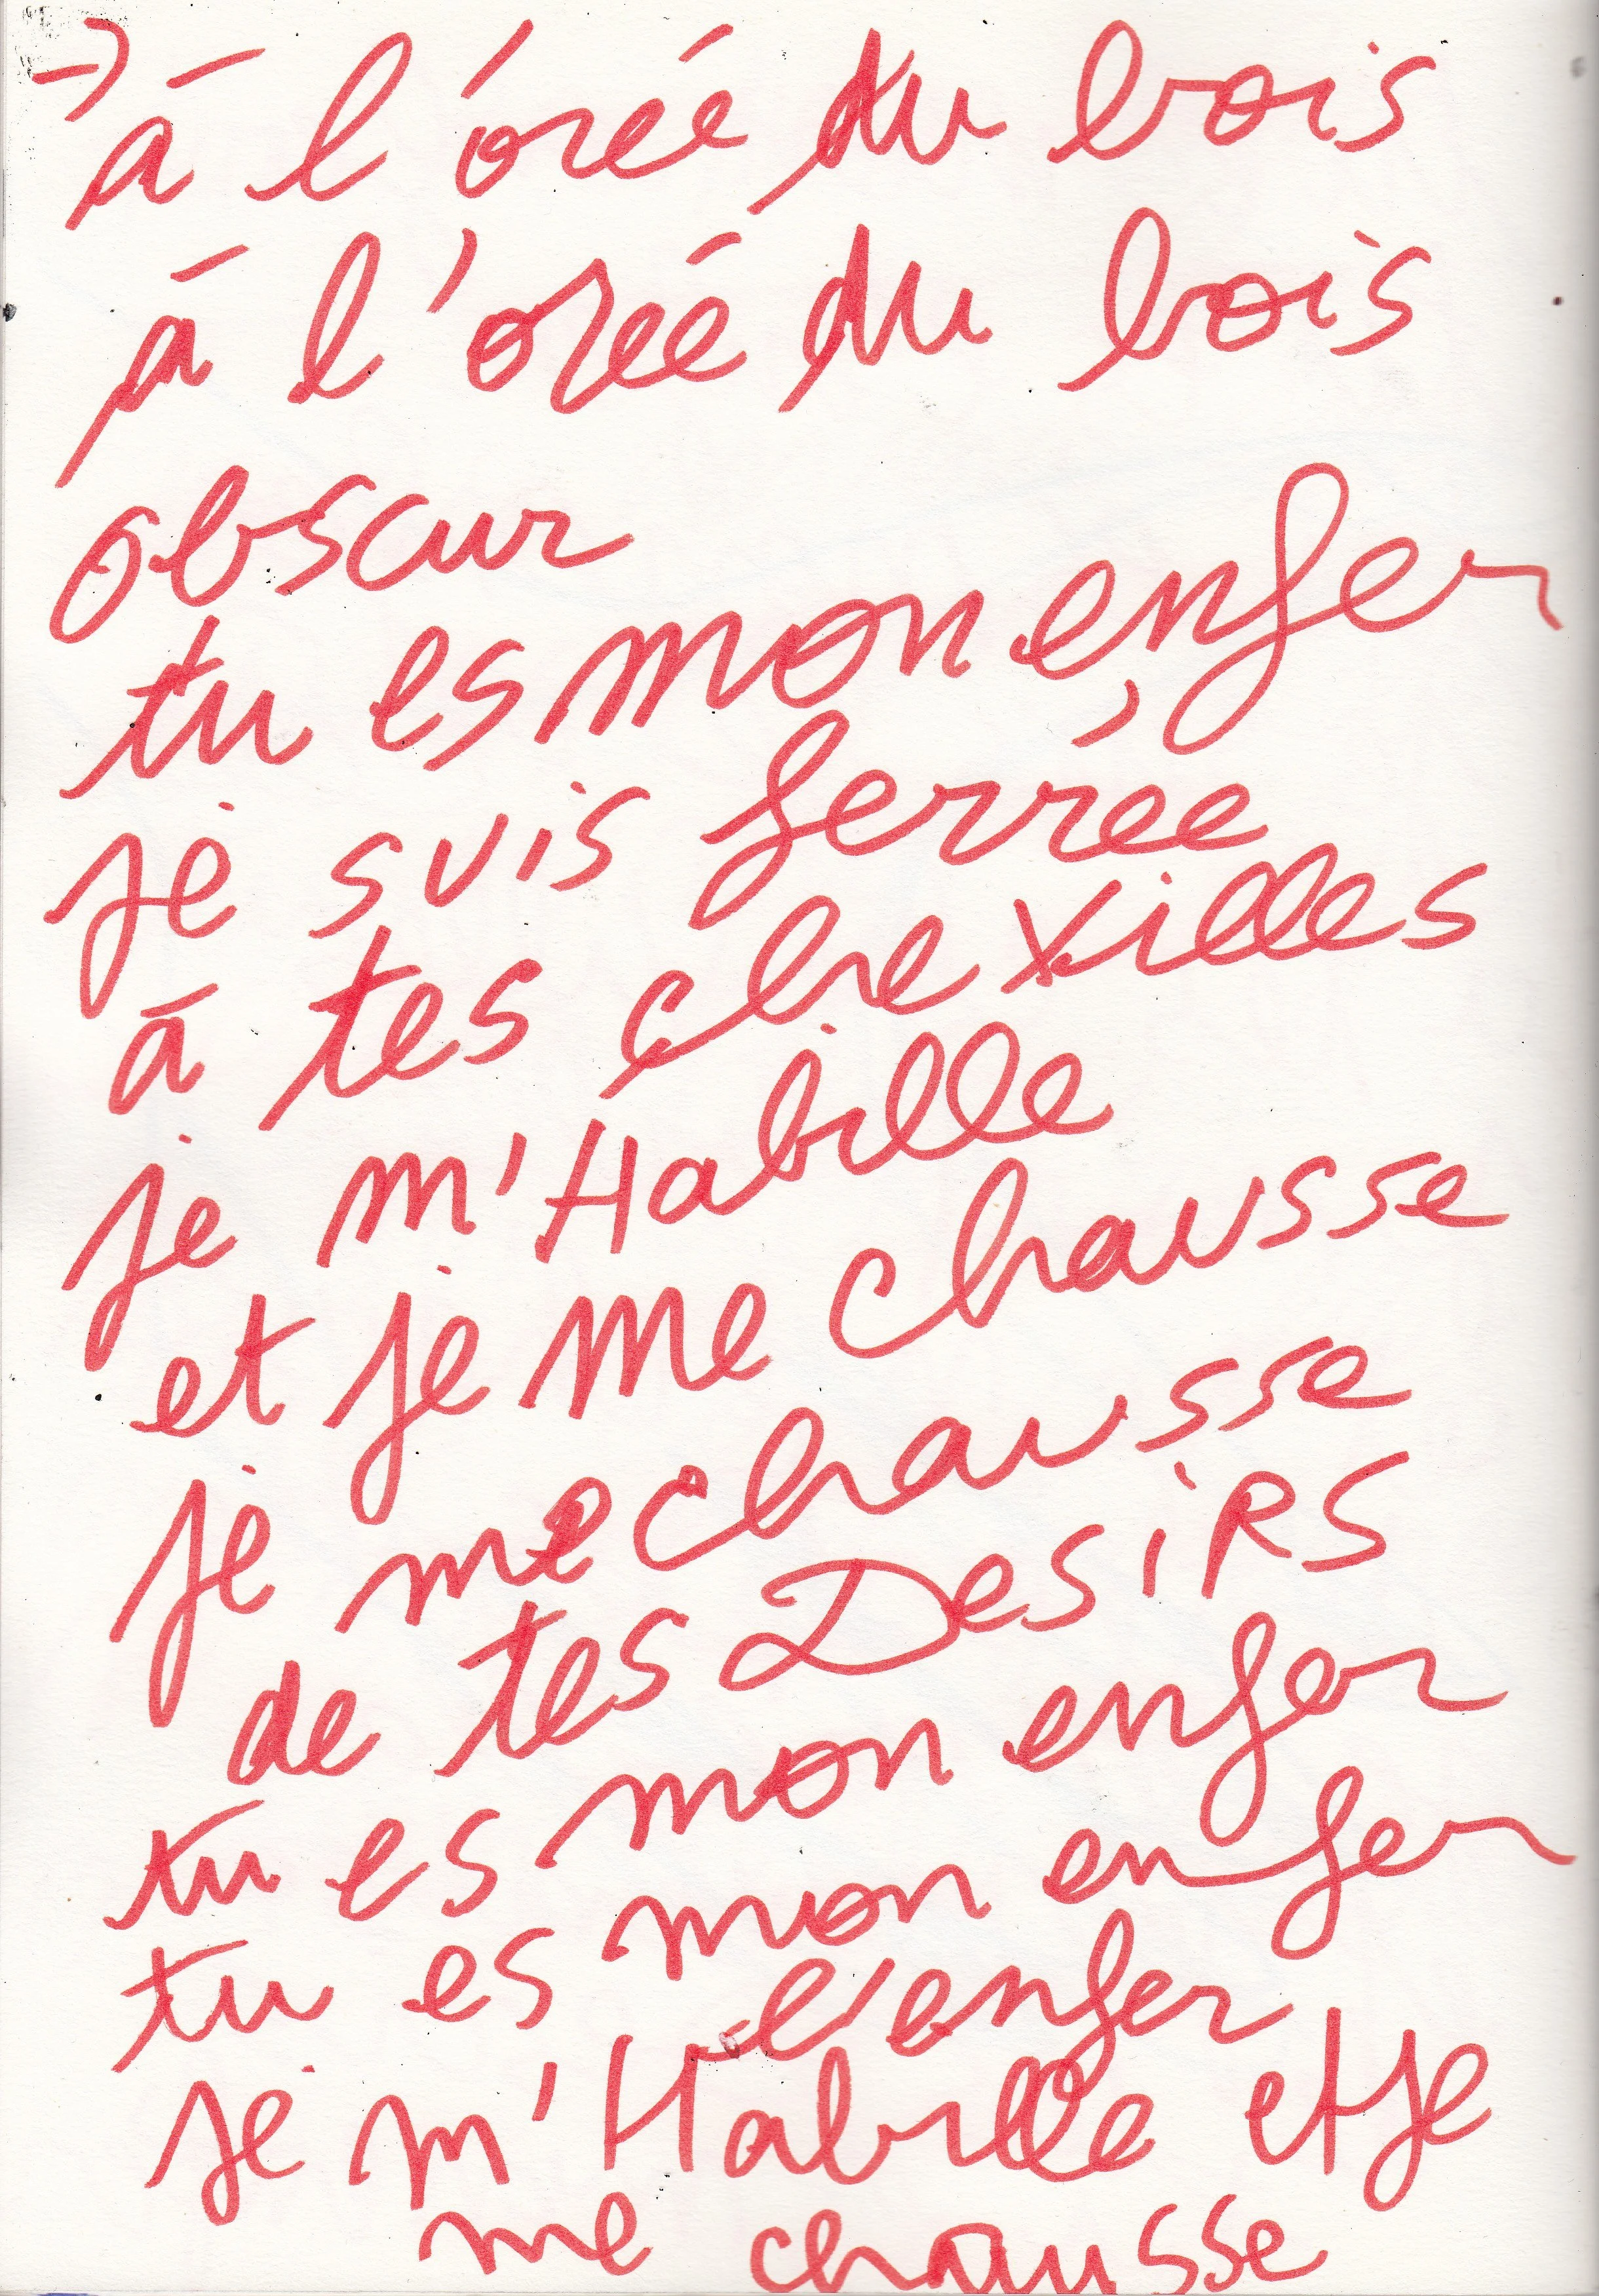 → à l'orée du bois
à l'orée du bois
obscur
tu es mon enfer
je suis ferrée
à tes chexilles
je m'Habille
et je me chausse
je me chausse
de tes DesiRS
tu es mon enfer
tu es mon enfer
l'enfer
je m'Habille et je
me chausse